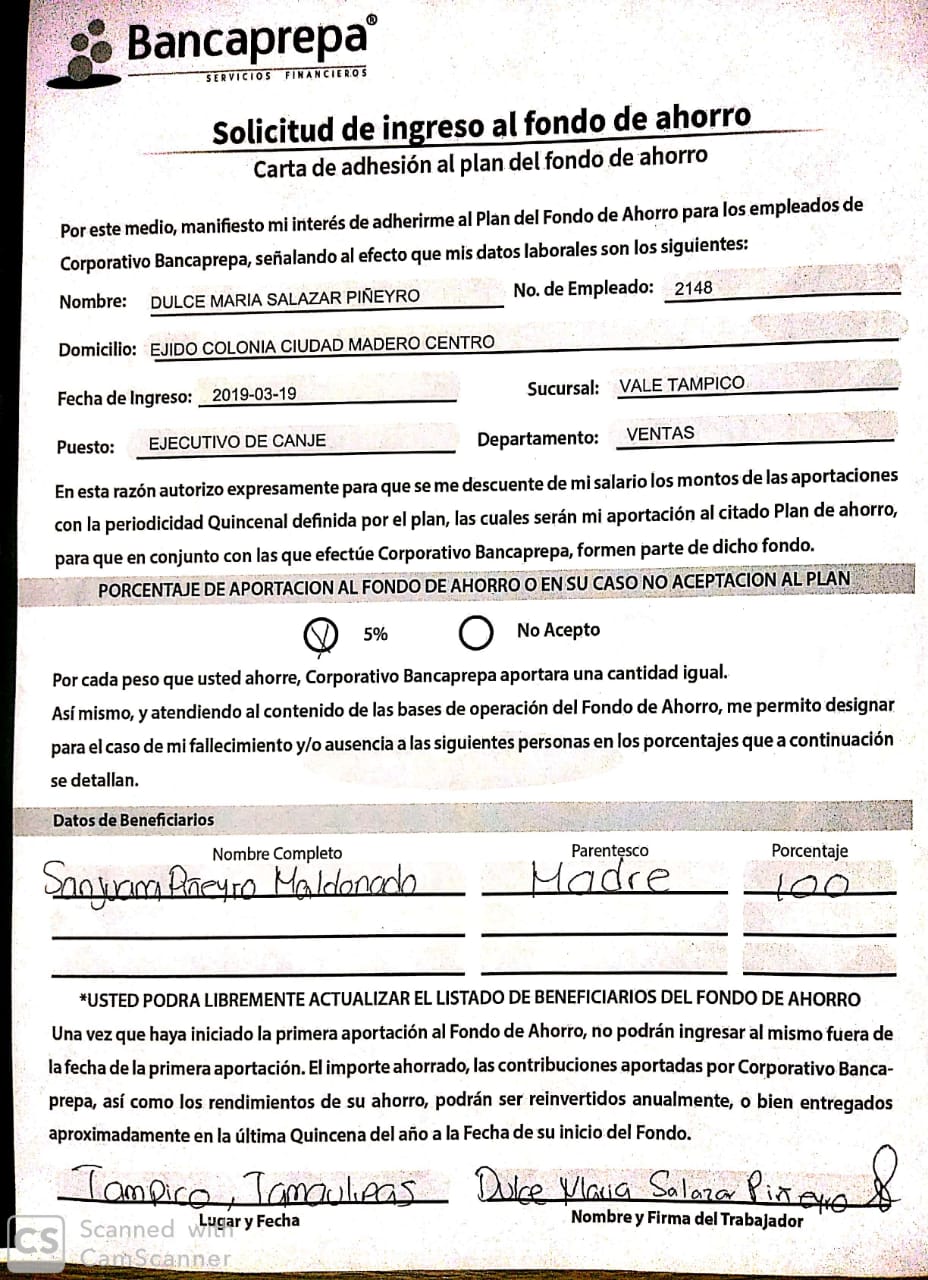 Bancaprepa®
SERVICIOS FINANCIEROS
Solicitud de ingreso al fondo de ahorro
Carta de adhesión al plan del fondo de ahorro
Por este medio, manifiesto mi interés de adherirme al Plan del Fondo de Ahorro para los empleados de
Corporativo Bancaprepa, señalando al efecto que mis datos laborales son los siguientes:
Nombre: DULCE MARIA SALAZAR PIÑEYRO No. de Empleado: 2148
Domicilio: EJIDO COLONIA CIUDAD MADERO CENTRO
Fecha de Ingreso: 2019-03-19 Sucursal: VALE TAMPICO
Puesto: EJECUTIVO DE CANJE Departamento: VENTAS
En esta razón autorizo expresamente para que se me descuente de mi salario los montos de las aportaciones
con la periodicidad Quincenal definida por el plan, las cuales serán mi aportación al citado Plan de ahorro,
para que en conjunto con las que efectúe Corporativo Bancaprepa, formen parte de dicho fondo.
PORCENTAJE DE APORTACION AL FONDO DE AHORRO O EN SU CASO NO ACEPTACION AL PLAN
5% No Acepto
Por cada peso que usted ahorre, Corporativo Bancaprepa aportara una cantidad igual.
Así mismo, y atendiendo al contenido de las bases de operación del Fondo de Ahorro, me permito designar
para el caso de mi fallecimiento y/o ausencia a las siguientes personas en los porcentajes que a continuación
se detallan.
Datos de Beneficiarios
Nombre Completo Parentesco Porcentaje
Piñeyro Maldonado Madre 100
*USTED PODRA LIBREMENTE ACTUALIZAR EL LISTADO DE BENEFICIARIOS DEL FONDO DE AHORRO
Una vez que haya iniciado la primera aportación al Fondo de Ahorro, no podrán ingresar al mismo fuera de
la fecha de la primera aportación. El importe ahorrado, las contribuciones aportadas por Corporativo Banca-
prepa, así como los rendimientos de su ahorro, podrán ser reinvertidos anualmente, o bien entregados
aproximadamente en la última Quincena del año a la Fecha de su inicio del Fondo.
Tampico, Tamaulipas Dulce Maria Salazar Piñeyro
Lugar y Fecha Nombre y Firma del Trabajador
CS Scanned with
CamScanner